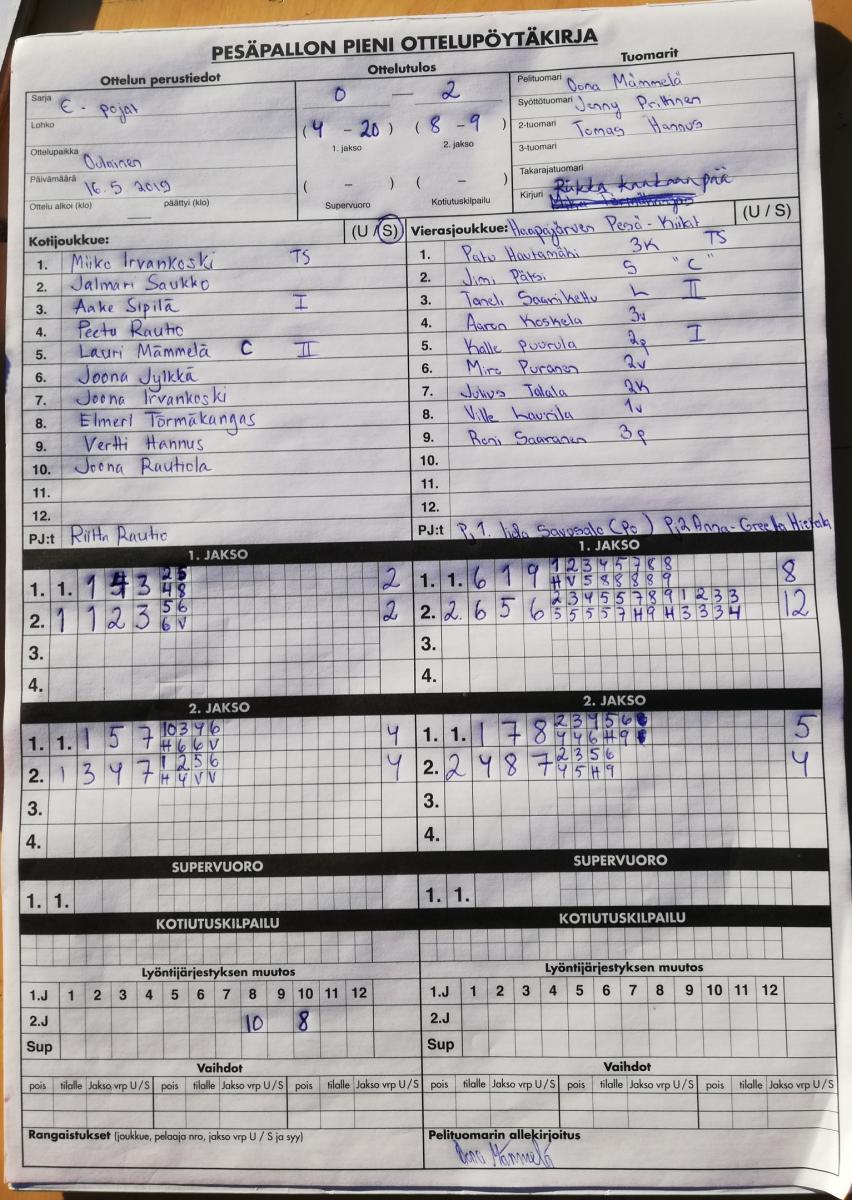 PESÄPALLON PIENI OTTELUPÖYTÄKIRJA
Ottelun perustiedot
Ottelutulos
Tuomarit
Sarja E - pojat
Lohko
Ottelupaikka Oulainen
Päivämäärä 16.5.2019
Ottelu alkoi (klo) päättyi (klo)
0 — 2
(4 - 20) (8 - 9)
1. jakso 2. jakso
( - ) ( - )
Supervuoro Kotiutuskilpailu
Pelituomari Oona Mämmelä
Syöttötuomari Jenny Prittinen
2-tuomari Tomas Hannus
3-tuomari
Takarajatuomari
Kirjuri Riikka Kankaanpää
Kotijoukkue: (U / S)
1. Miiko Irvankoski TS
2. Jalmari Saukko
3. Aake Sipilä I
4. Peetu Rautio
5. Lauri Mämmelä C II
6. Joona Jylkkä
7. Joona Irvankoski
8. Elmeri Törmäkangas
9. Vertti Hannus
10. Joona Rautiola
11.
12.
PJ:t Riitta Rautio
Vierasjoukkue: Haapajärven Pesä-Kiikit (U / S)
1. Patu Hautamäki 3K TS
2. Jimi Pätsi S "C"
3. Taneli Saarikettu L II
4. Aaron Koskela 3v
5. Kalle Puurula 2p I
6. Miro Puranen 2v
7. Julius Talala 2K
8. Ville Laurila 1v
9. Roni Saaranen 3p
10.
11.
12.
PJ:t Pj1. Iida Savusalo (Po) Pj2 Anna-Greeta Hietala
1. JAKSO
1. 1. 1 3 2 5 2
4 8
2. 1 1 2 3 5 6 2
6 V
3.
4.
1. JAKSO
1. 1. 6 1 9 1 2 3 4 5 7 8 8 8
H V 5 8 8 8 8 9
2. 2. 6 5 6 2 3 4 5 5 7 8 9 1 2 3 3 12
5 5 5 5 7 H 9 H 3 3 3 4
3.
4.
2. JAKSO
1. 1. 1 5 7 10 3 4 6 4
H 6 6 V
2. 1 3 4 7 1 2 5 6 4
H 4 V V
3.
4.
2. JAKSO
1. 1. 1 7 8 2 3 4 5 6 5
4 4 6 H 9
2. 2 4 8 7 2 3 5 6 4
4 5 H 9
3.
4.
SUPERVUORO
1. 1.
SUPERVUORO
1. 1.
KOTIUTUSKILPAILU
KOTIUTUSKILPAILU
Lyöntijärjestyksen muutos
1.J 1 2 3 4 5 6 7 8 9 10 11 12
2.J 10 8
Sup
Lyöntijärjestyksen muutos
1.J 1 2 3 4 5 6 7 8 9 10 11 12
2.J
Sup
Vaihdot
pois tilalle Jakso vrp U/S pois tilalle Jakso vrp U/S pois tilalle Jakso vrp U/S
Vaihdot
pois tilalle Jakso vrp U/S pois tilalle Jakso vrp U/S pois tilalle Jakso vrp U/S
Rangaistukset (joukkue, pelaaja nro, jakso vrp U / S ja syy)
Pelituomarin allekirjoitus
Oona Mämmelä